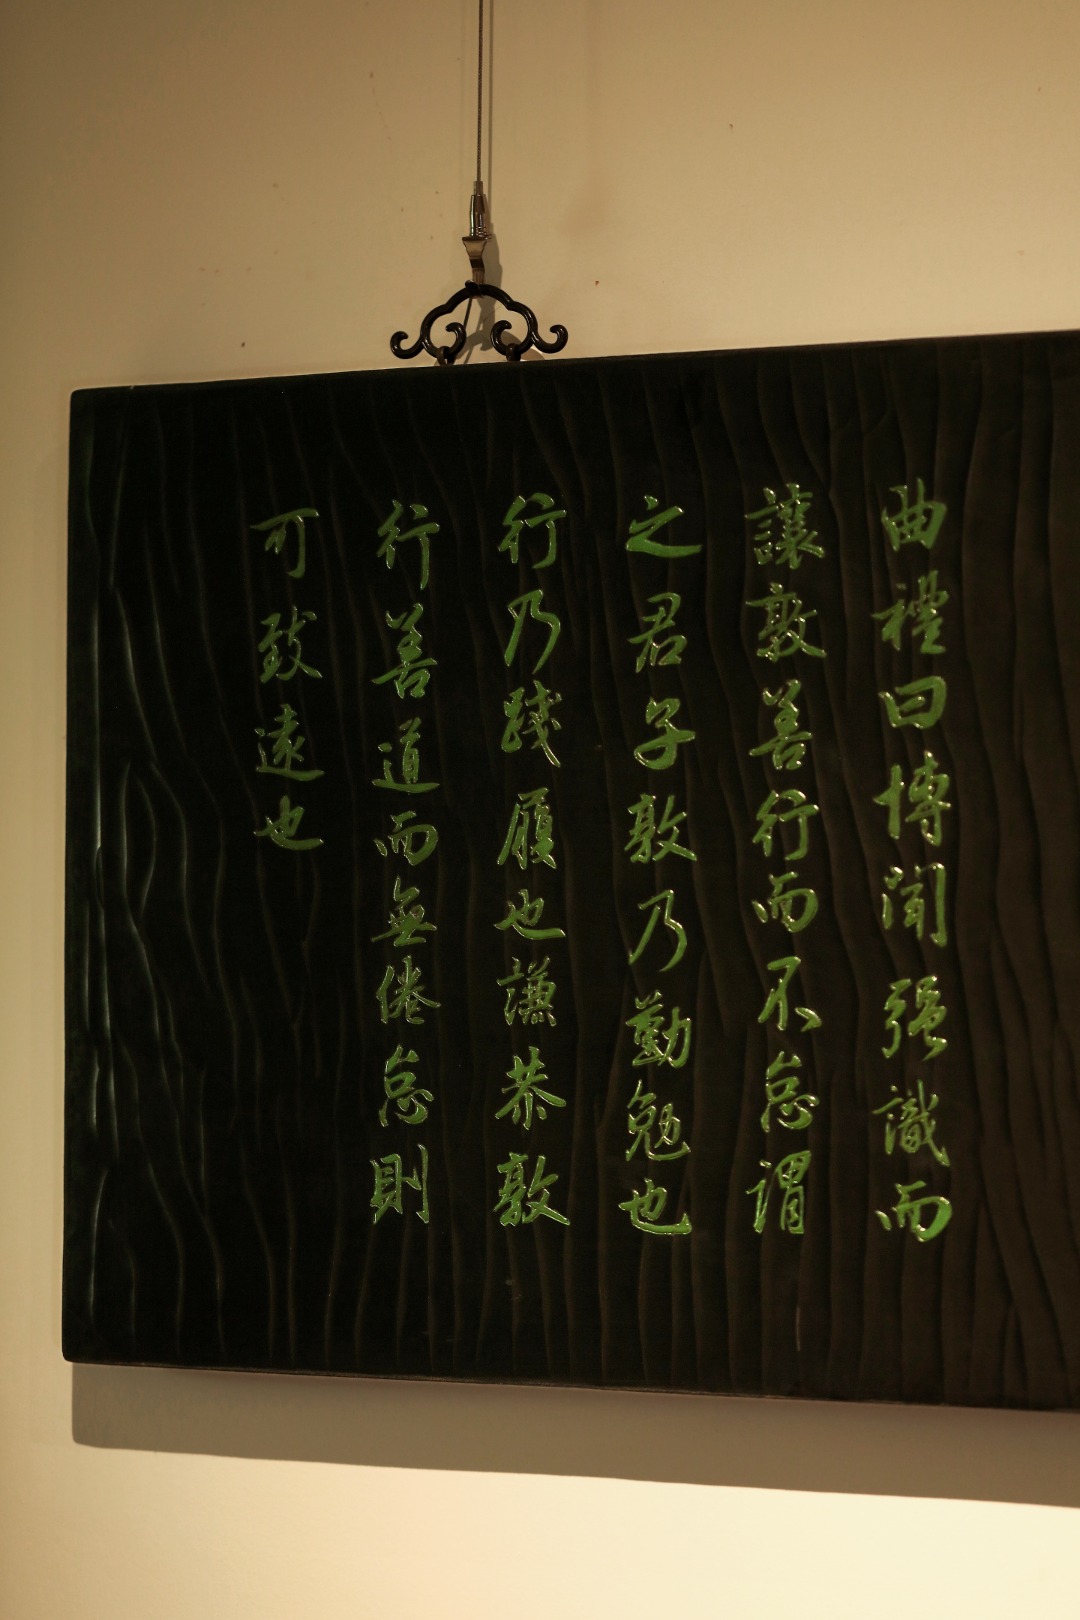 曲禮曰博闻强識而
讓敦善行而不怠謂
之君子敦乃勤勉也
行乃踐履也謙恭敦
行善道而無倦怠則
可致遠也